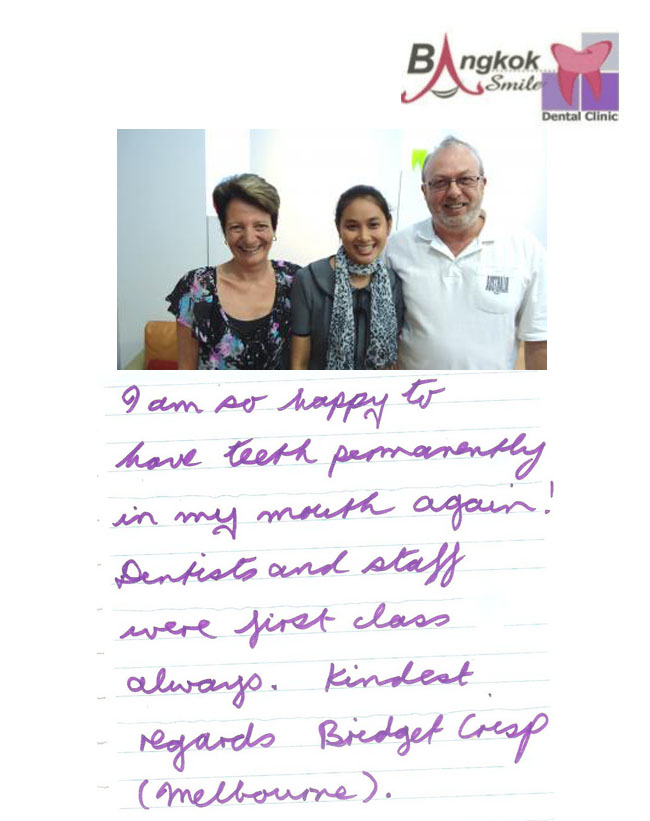 BAngkok
Smile
Dental Clinic
AUSTRALIA
I am so happy to
have teeth permanently
in my mouth again!
Dentists and staff
were first class
always. Kindest
regards Bridget Crisp
(Melbourne).